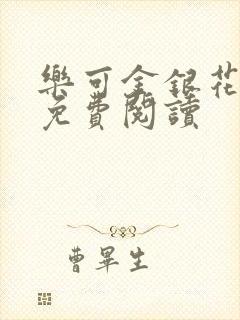 樂可金銀花
免費閱讀
曹畢生